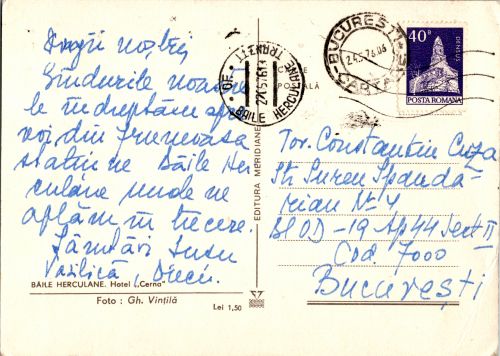 Dragii noștri
Gîndurile noastre
le îndreptăm spre
voi din frumoasa
stațiune Băile Her
culane unde ne
aflăm în trecere.
Vasilică
BĂILE HERCULANE. Hotel „Cerna”
Foto : Gh. Vințilă
Lei 1,50
EDITURA MERIDIANE
OF.
BĂILE HERCULANE
BUCUREȘTI
CARTARE
40B
DENSUS
POSTA ROMANA
POȘTALĂ
Tov. Constantin Cuza
Str Suren Spanda-
rian Nr 4
Bl OD-19 Ap 44 Sect II
Cod. 7000
București